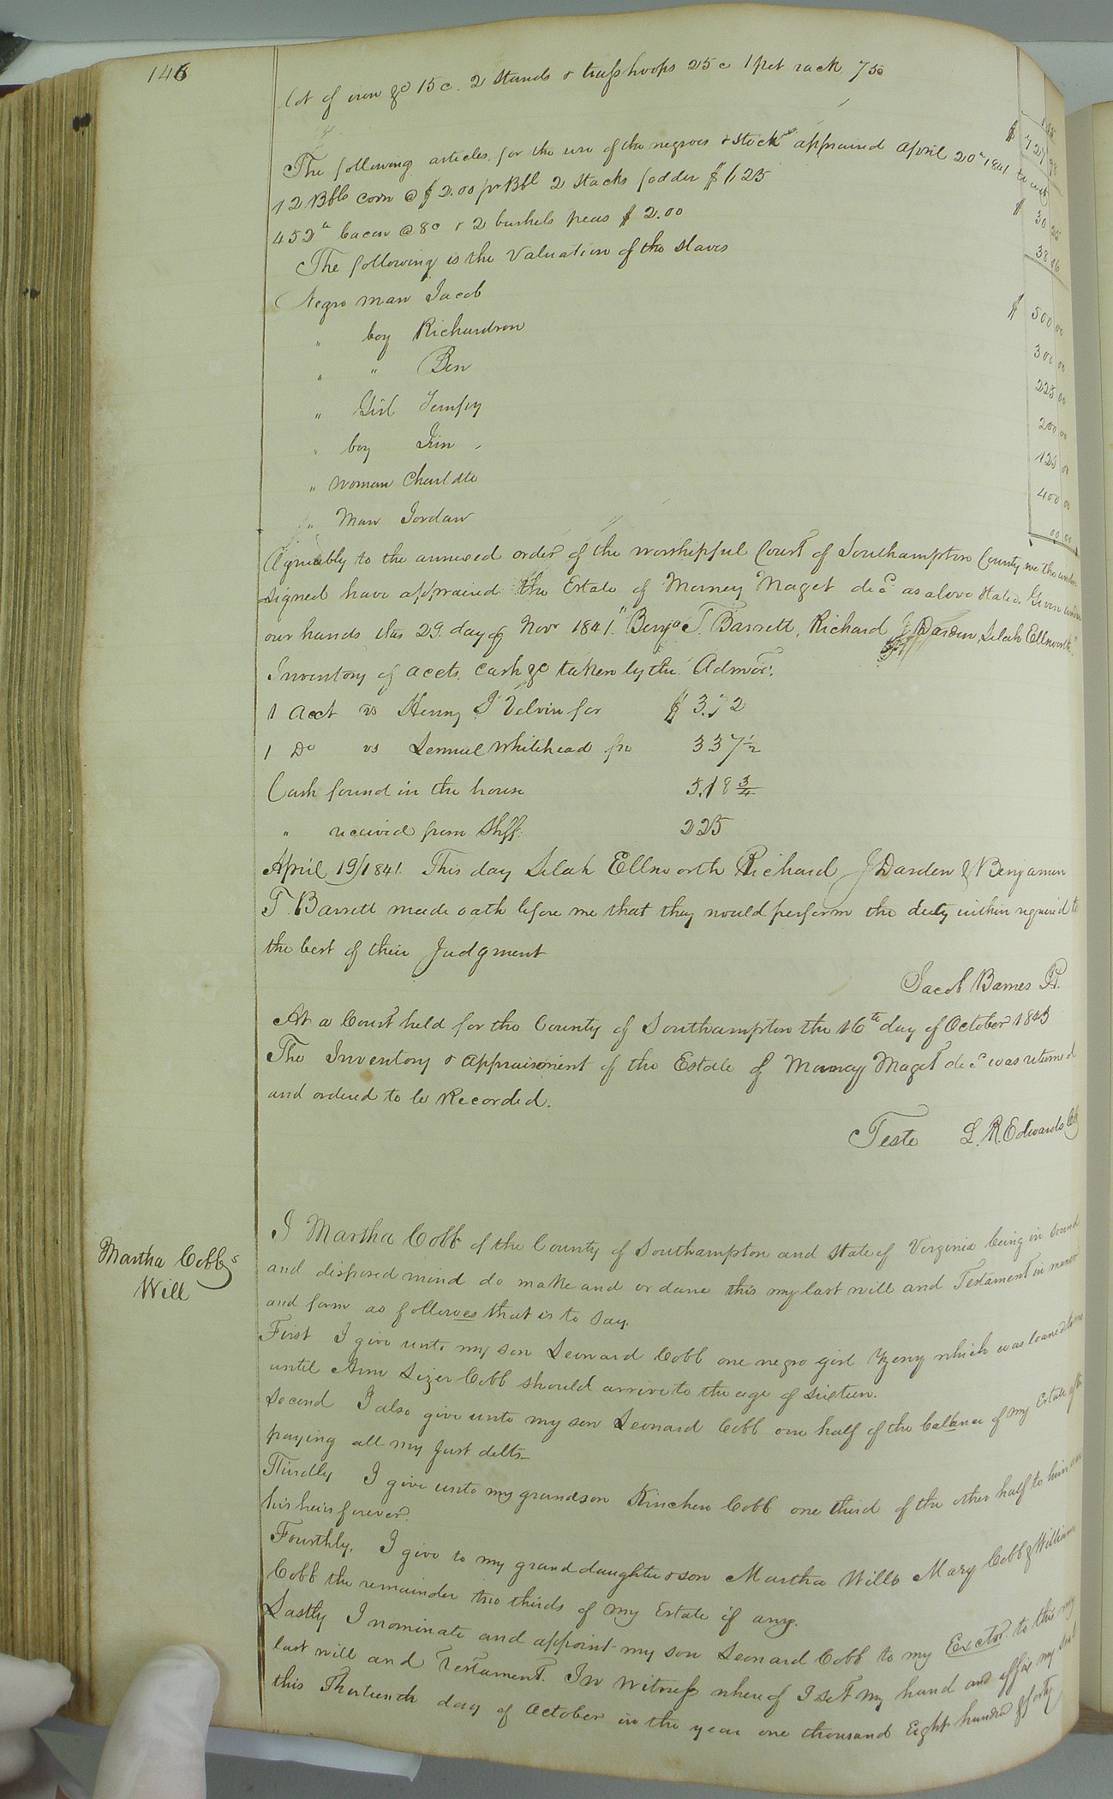 146
Lot of iron &c 15c. 2 Stands & trusshoops 25c 1 pet rack 750
The following articles for the use of the negroes & Stock appraised April 20th 1841 to wit
12 Bbls Corn @ $2.00 pr Bbl 2 Stacks fodder $6.25 $ 30 25
452 lb bacon @ 8c & 2 bushels peas $2.00 38 16
The following is the Valuation of the Slaves
Negro man Jacob $ 500 00
" boy Richardson 300 00
" " Ben 225 00
" Girl Tempy 200 00
" boy Jim 125 00
" Woman Charlotte 400 00
" Man Jordan 00 00
Agreeably to the annexed order of the worshipful Court of Southampton County we the under
signed have appraised the Estate of Maget decd as above stated. Given under
our hands this 29 day of Novr 1841. Benja T. Barrett, Richard J Darden, Selah Ellsworth
Inventory of accts, cash &c taken by the Admor.
1 Acct vs Henry J Velvin for $ 3.72
1 Do vs Lemuel Whitehead for 337½
Cash found in the house 5.18¾
" received from Shff. 225
April 19/1841. This day Selah Ellsworth Richard J Darden & Benjamin
T. Barrett made oath before me that they would perform the duty within required to
the best of their Judgment
Jacob Barnes
At a Court held for the County of Southampton the 16th day of October 1845
The Inventory & appraisment of the Estate of Maget decd was returned
and ordered to be Recorded.
Teste L. R. Edwards
Martha Cobbs
Will
I Martha Cobb of the County of Southampton and State of Virginia being in sound
and disposed mind do make and ordane this my last will and Testament in manner
and form as followes that is to say.
First I give unto my son Leonard Cobb one negro girl which was loaned to me
until Ann Lizer Cobb should arrive to the age of Sixteen.
Second I also give unto my son Leonard Cobb one half of the balance of my Estate after
paying all my Just debts
Thirdly I give unto my grandson Kinchen Cobb one third of the other half to him and
his heirs forever.
Fourthly, I give to my grand daughter & son Martha Wills Mary Cobb & William
Cobb the remainder two thirds of my Estate if any.
Lastly I nominate and appoint my son Leonard Cobb to my Exctor. to this my
last will and Testament. In witness whereof I set my hand and affix my seal
this Thirteenth day of October in the year one thousand Eight hundred & forty